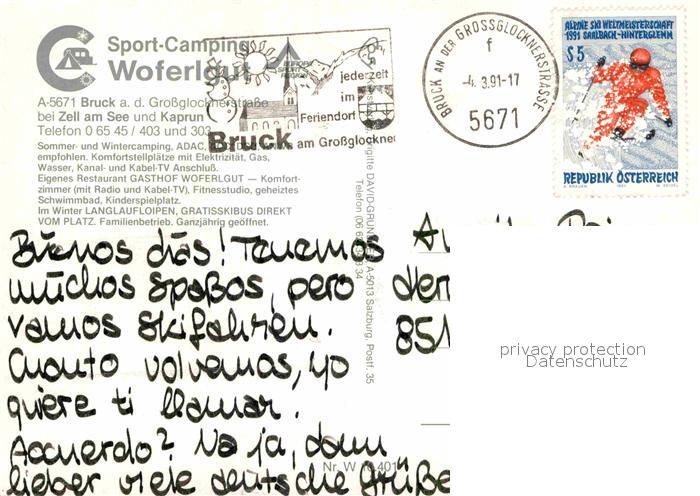 Sport-Camping
Woferlgut
A-5671 Bruck a. d. Großglocknerstraße
bei Zell am See und Kaprun
Telefon 0 65 45 / 403 und 303
Sommer- und Wintercamping, ADAC,
empfohlen. Komfortstellplätze mit Elektrizität, Gas,
Wasser, Kanal- und Kabel-TV Anschluß.
Eigenes Restaurant GASTHOF WOFERLGUT — Komfort-
zimmer (mit Radio und Kabel-TV), Fitnesstudio, geheiztes
Schwimmbad, Kinderspielplatz.
Im Winter LANGLAUFLOIPEN, GRATISSKIBUS DIREKT
VOM PLATZ. Familienbetrieb. Ganzjährig geöffnet.
EUROPA
SPORT
REGION
jederzeit
im
Feriendorf
Bruck am Großglockner
BRUCK AN DER GROSSGLOCKNERSTRASSE
f
-4. 3.91-17
5671
ALPINE SKI WELTMEISTERSCHAFT
1991 SAALBACH-HINTERGLEMM
S 5
REPUBLIK ÖSTERREICH
DAVID-GRUN A-5013 Salzburg, Postf. 35
Telefon (06
Nr. W 10.401
Buenos diás! Tenemos
muchos spaßos, pero
vamos skifahren.
Cuanto volvemos, yo
quiere ti llamar.
Acuerdo? Na ja, dann
lieber viele deutsche Grüße
der
851
privacy protection
Datenschutz